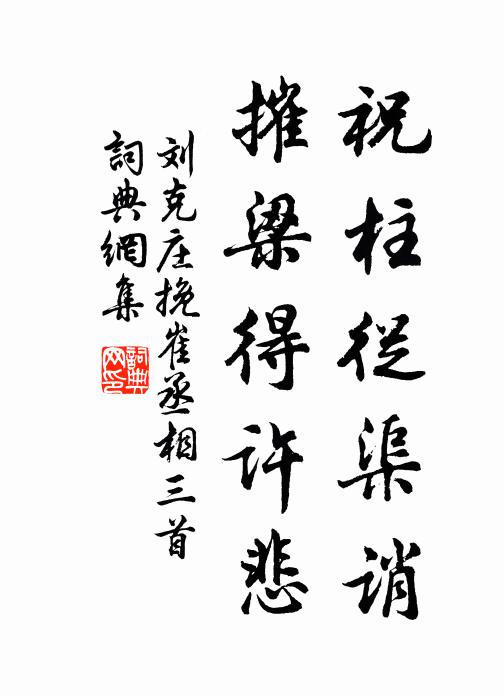 祝柱從渠誚
摧梁得許悲
刘克庄挽崔丞相三首
詞典網集
詞典网印